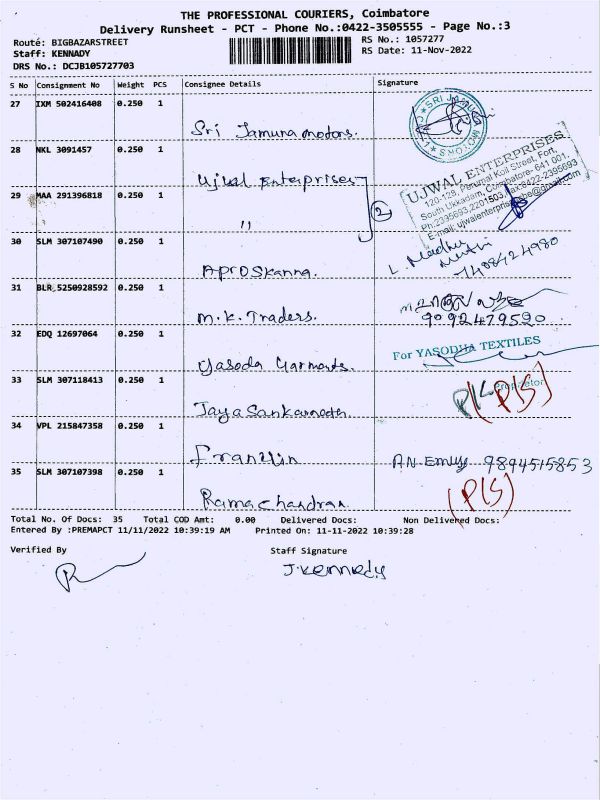 THE PROFESSIONAL COURIERS, Coimbatore
Delivery Runsheet - PCT - Phone No.:0422-3505555 - Page No.:3
Route: BIGBAZARSTREET
RS No.: 1057277
Staff: KENNADY
RS Date: 11-Nov-2022
DRS No.: DCJB105727703
S No Consignment No Weight PCS Consignee Details Signature
27 IXM 502416408 0.250 1
Sri Jamuna motors.
SRI JAMUNA MOTORS
28 NKL 3091457 0.250 1
Ujwal Enterprises
2
UJWAL ENTERPRISES
120-128, Perumal Koil Street, Fort,
South Ukkadam, Coimbatore- 641 001.
Ph:2395693,2201503, Fax:0422-2395693
29 MAA 291396818 0.250 1
"
30 SLM 307107490 0.250 1
L. Madhu
7408424980
31 BLR 5250928592 0.250 1
M.K. Traders.
9092479590
32 EDQ 12697064 0.250 1
Yasoda Garments.
For YASODHA TEXTILES
Proprietor
33 SLM 307118413 0.250 1
(P/S)
34 VPL 215847358 0.250 1
Franklin
9894515853
35 SLM 307107398 0.250 1
Ramachandran
(P/S)
Total No. Of Docs: 35 Total COD Amt: 0.00 Delivered Docs: Non Delivered Docs:
Entered By :PREMAPCT 11/11/2022 10:39:19 AM Printed On: 11-11-2022 10:39:28
Verified By
Staff Signature
J.Kennedy